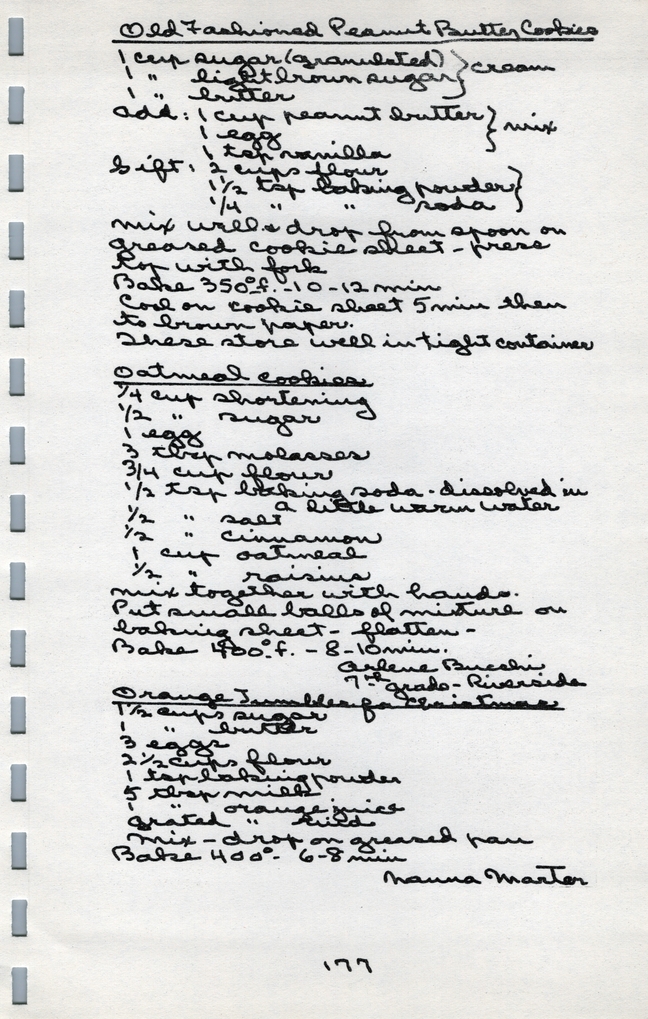 Old Fashioned Peanut Butter Cookies
1 cup sugar (granulated) } cream
1 " light brown sugar
1 " butter
add: 1 cup peanut butter } mix
1 egg
1 tsp vanilla
Sift: 2 cups flour }
1 1/2 tsp baking powder
1/4 " " soda
mix well & drop from spoon on
greased cookie sheet - press
top with fork
Bake 350° f. - 10-12 min
Cool on cookie sheet 5 min then
to brown paper.
These store well in tight container
Oatmeal cookies
1/4 cup shortening
1/2 " sugar
1 egg
3 tbsp molasses
3/4 cup flour
1/2 tsp baking soda - dissolved in
a little warm water
1/2 " salt
1/2 " cinnamon
1 cup oatmeal
1/2 " raisins
mix together with hands.
Put small balls of mixture on
baking sheet - flatten -
Bake 400° f. - 8-10 min.
Arlene Bucchi
7th grade - Riverside
Orange Jumbles for Christmas
1 1/2 cups sugar
1 " butter
3 eggs
2 1/2 cups flour
1 tsp baking powder
5 tbsp milk
1 " orange juice
grated " rind
Mix - drop on greased pan
Bake 400° - 6-8 min
Nanna Marter
177